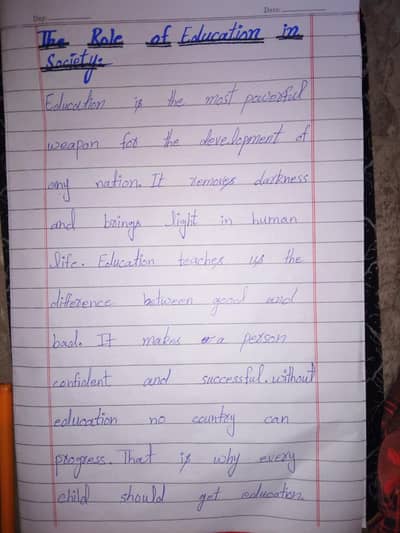 Day: Date:
The Role of Education in
Society:
Education is the most powerful
weapon for the development of
any nation. It removes darkness
and brings light in human
life. Education teaches us the
difference between good and
bad. It makes a person
confident and successful. without
education no country can
progress. That is why every
child should get education.